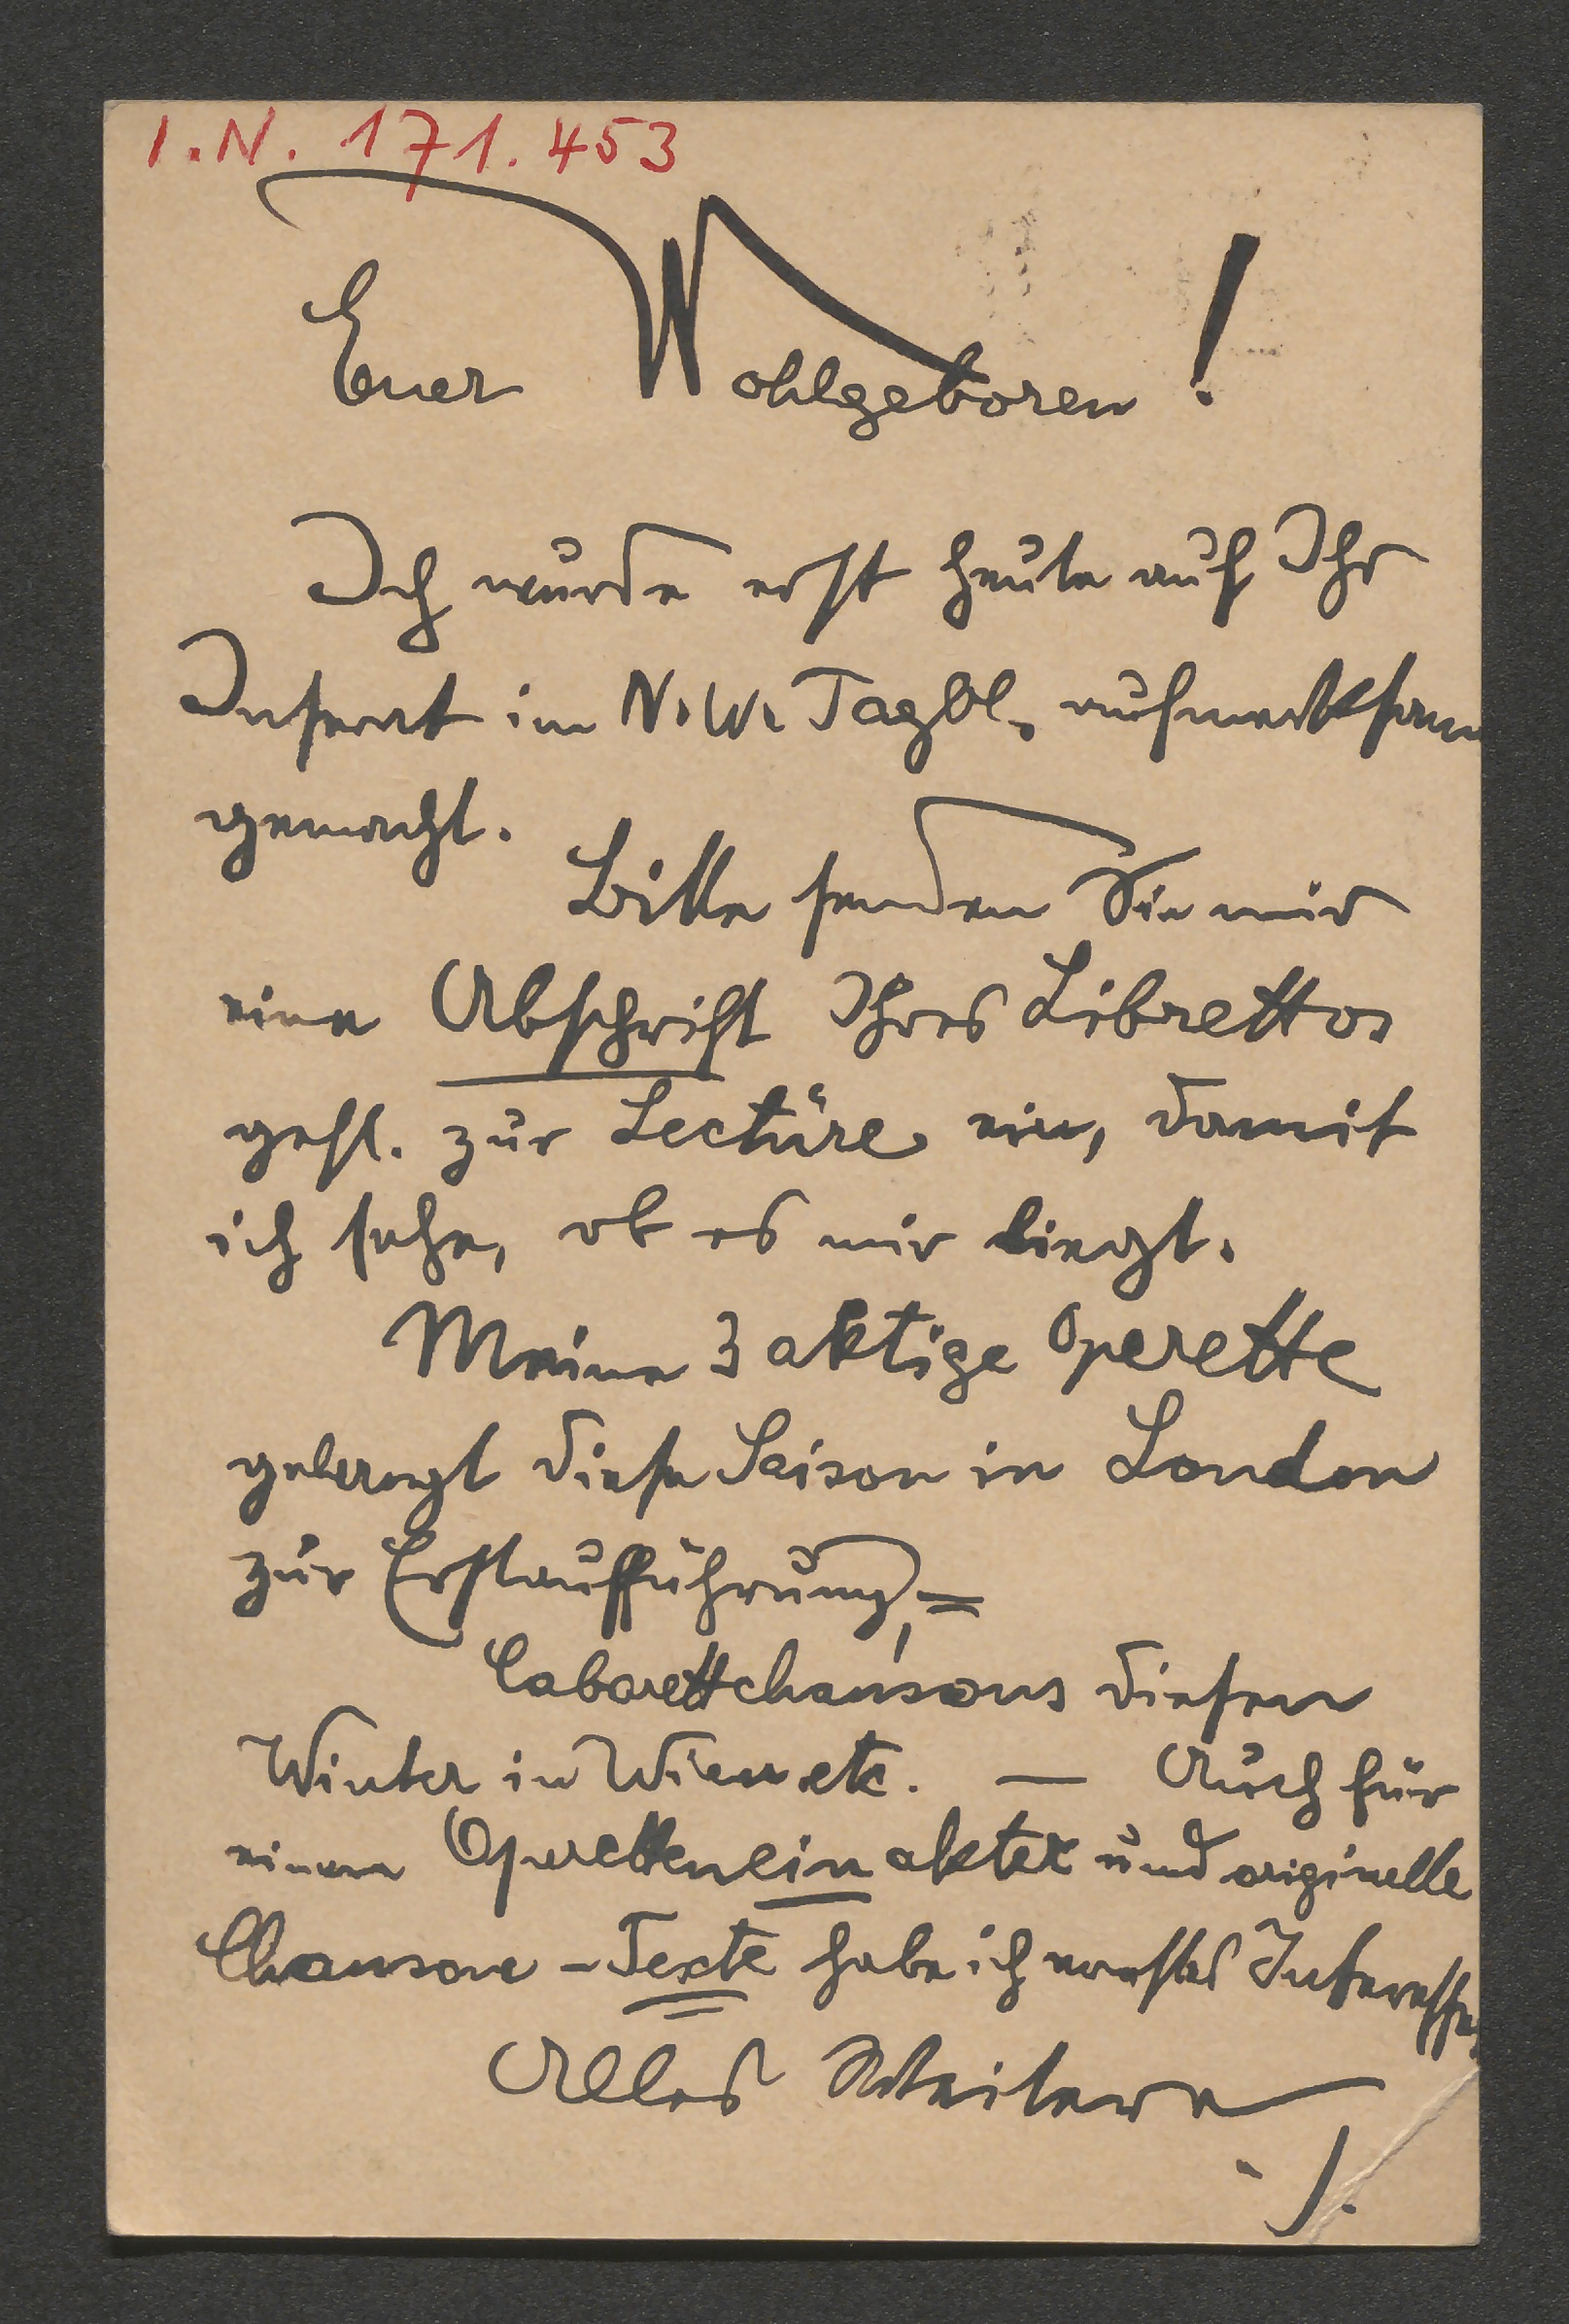 I.N. 171.453
Euer Wohlgeboren!
Ich wurde erst heute auf Ihr
Inserat im N. W. Tagbl. aufmerksam
gemacht.
Bitte senden Sie mir
eine Abschrift Ihres Librettos
gefl. zur Lectüre ein, damit
ich sehe, ob es mir liegt.
Meine 3 aktige Operette
gelangt diese Saison in London
zur Erstaufführung, =
Cabarettchansons diesen
Winter in Wien etc. — Auch für
einen Operetteneinakter und originelle
Chanson-Texte habe ich Interesse,
Alles Weitere